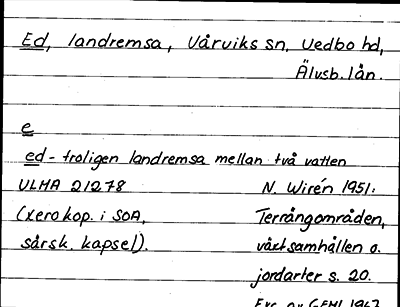 Ed, landremsa, Vårviks sn, Vedbo hd,
Älvsb. län.
e
ed - troligen landremsa mellan två vatten
ULMA 21278 N. Wirén 1951.
(xerokop. i SOA, Terrängområden,
särsk. kapsel). växtsamhällen o.
jordarter s. 20.
Exc. av GEHL 1967